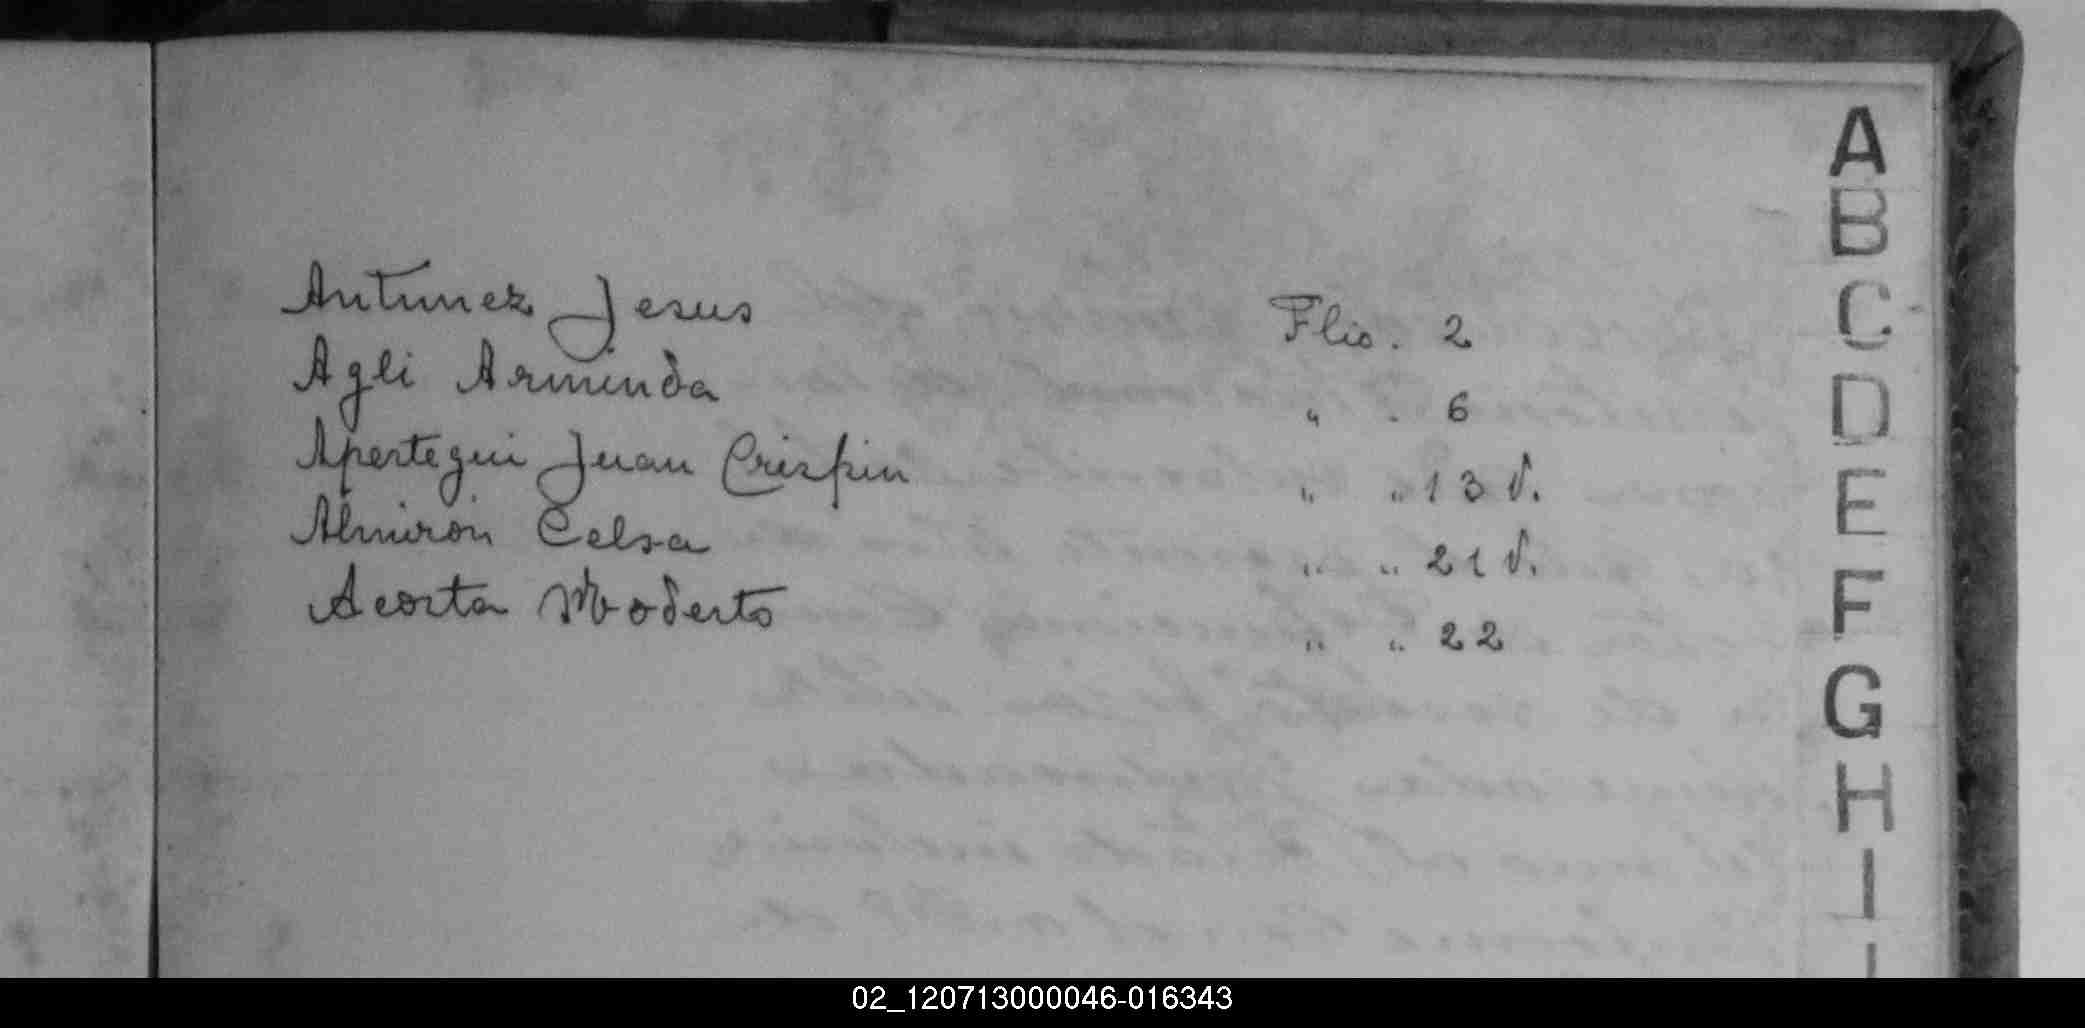 Antunez Jesus Flio. 2
Agli Arminda " . 6
Apertegui Juan Crispin " " 13 v.
Almiron Celsa " " 21 v.
Acosta Modesto " " 22
A
B
C
D
E
F
G
H
I
02_120713000046-016343